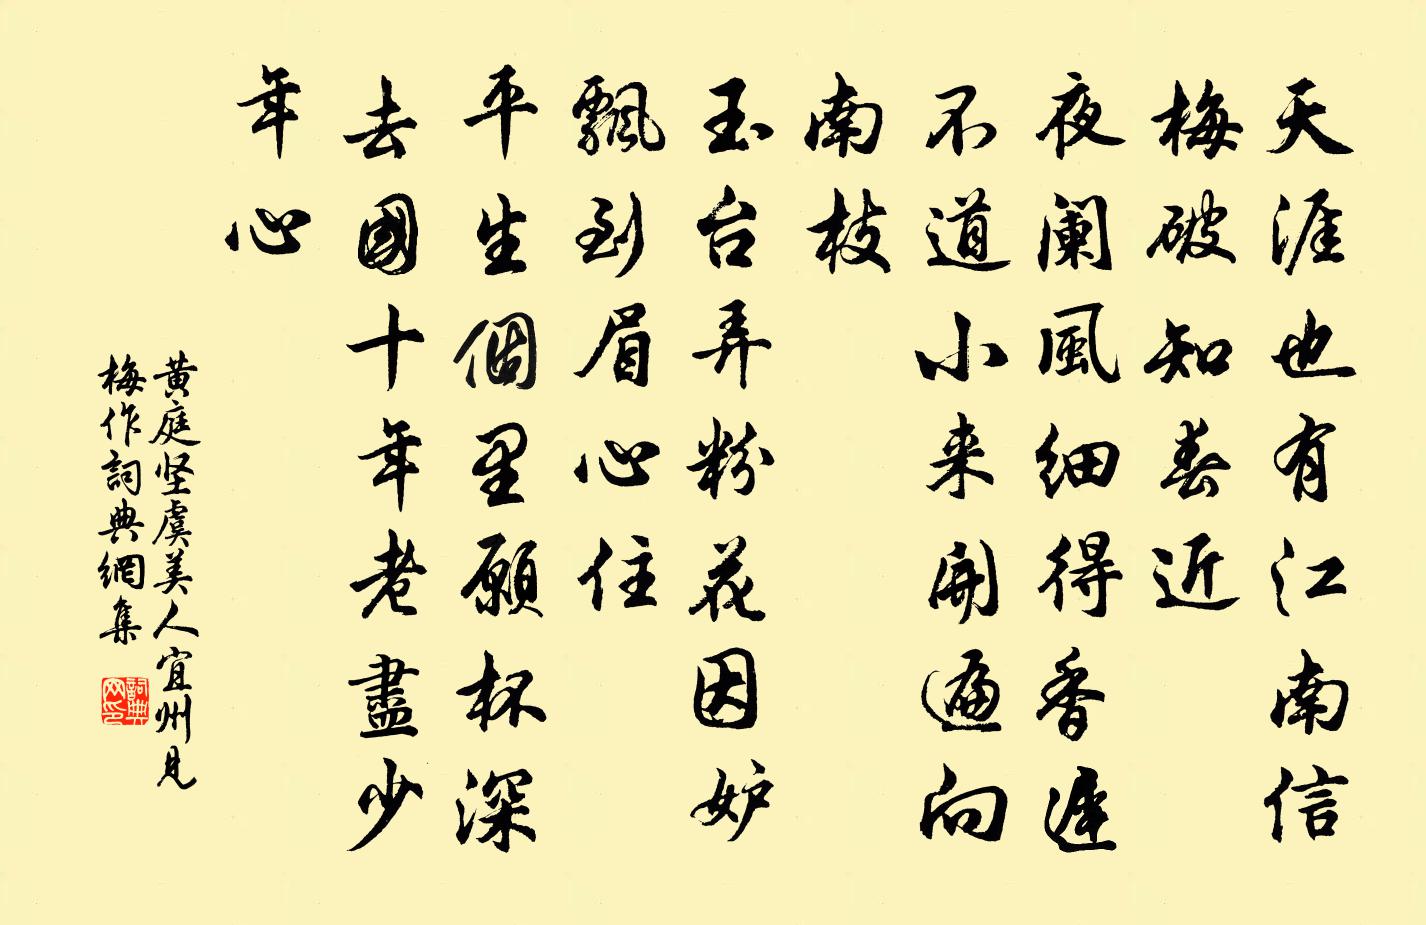 天涯也有江南信
梅破知春近
夜阑風细得香遲
不道小来開遍向
南枝
玉台弄粉花因妒
飄到眉心住
平生個里願杯深
去國十年老盡少
年心
黄庭坚虞美人宜州見
梅作詞典網集
詞典
网印